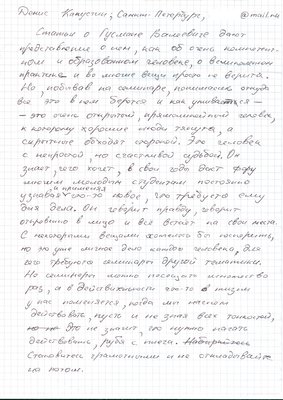 Денис Капустин, Санкт-Петербург, @mail.ru
Статьи о Гусмане Валеевиче дают
представление о нем, как об очень компетент-
ном и образованном человеке, о великолепном
практике и во многие вещи просто не верится.
Но, побывав на семинаре, понимаешь откуда
все это в нем берется и как уживается -
- это очень открытый, прямолинейный человек,
к которому хорошие люди тянутся, а
скрытные обходят стороной. Это человек
с непростой, но счастливой судьбой. Он
знает, чего хочет, в свои годы дает фору
многим молодым студентам постоянно
узнавая и применяя что-то новое, что требуется ему
для дела. Он говорит правду, говорит
открыто в лицо и все встает на свои места.
С некоторыми вещами хотелось бы поспорить,
но это уже личное дело каждого человека, для
кого требуются семинары другой тематики.
Но семинары можно посещать множество
раз, а в действительности что-то в жизни
у нас поменяется, когда мы начнем
действовать, пусть и не зная всех тонкостей,
Это не значит, что нужно начать
действовать, рубя с плеча.
Становитесь грамотными и не откладывайте
на потом.